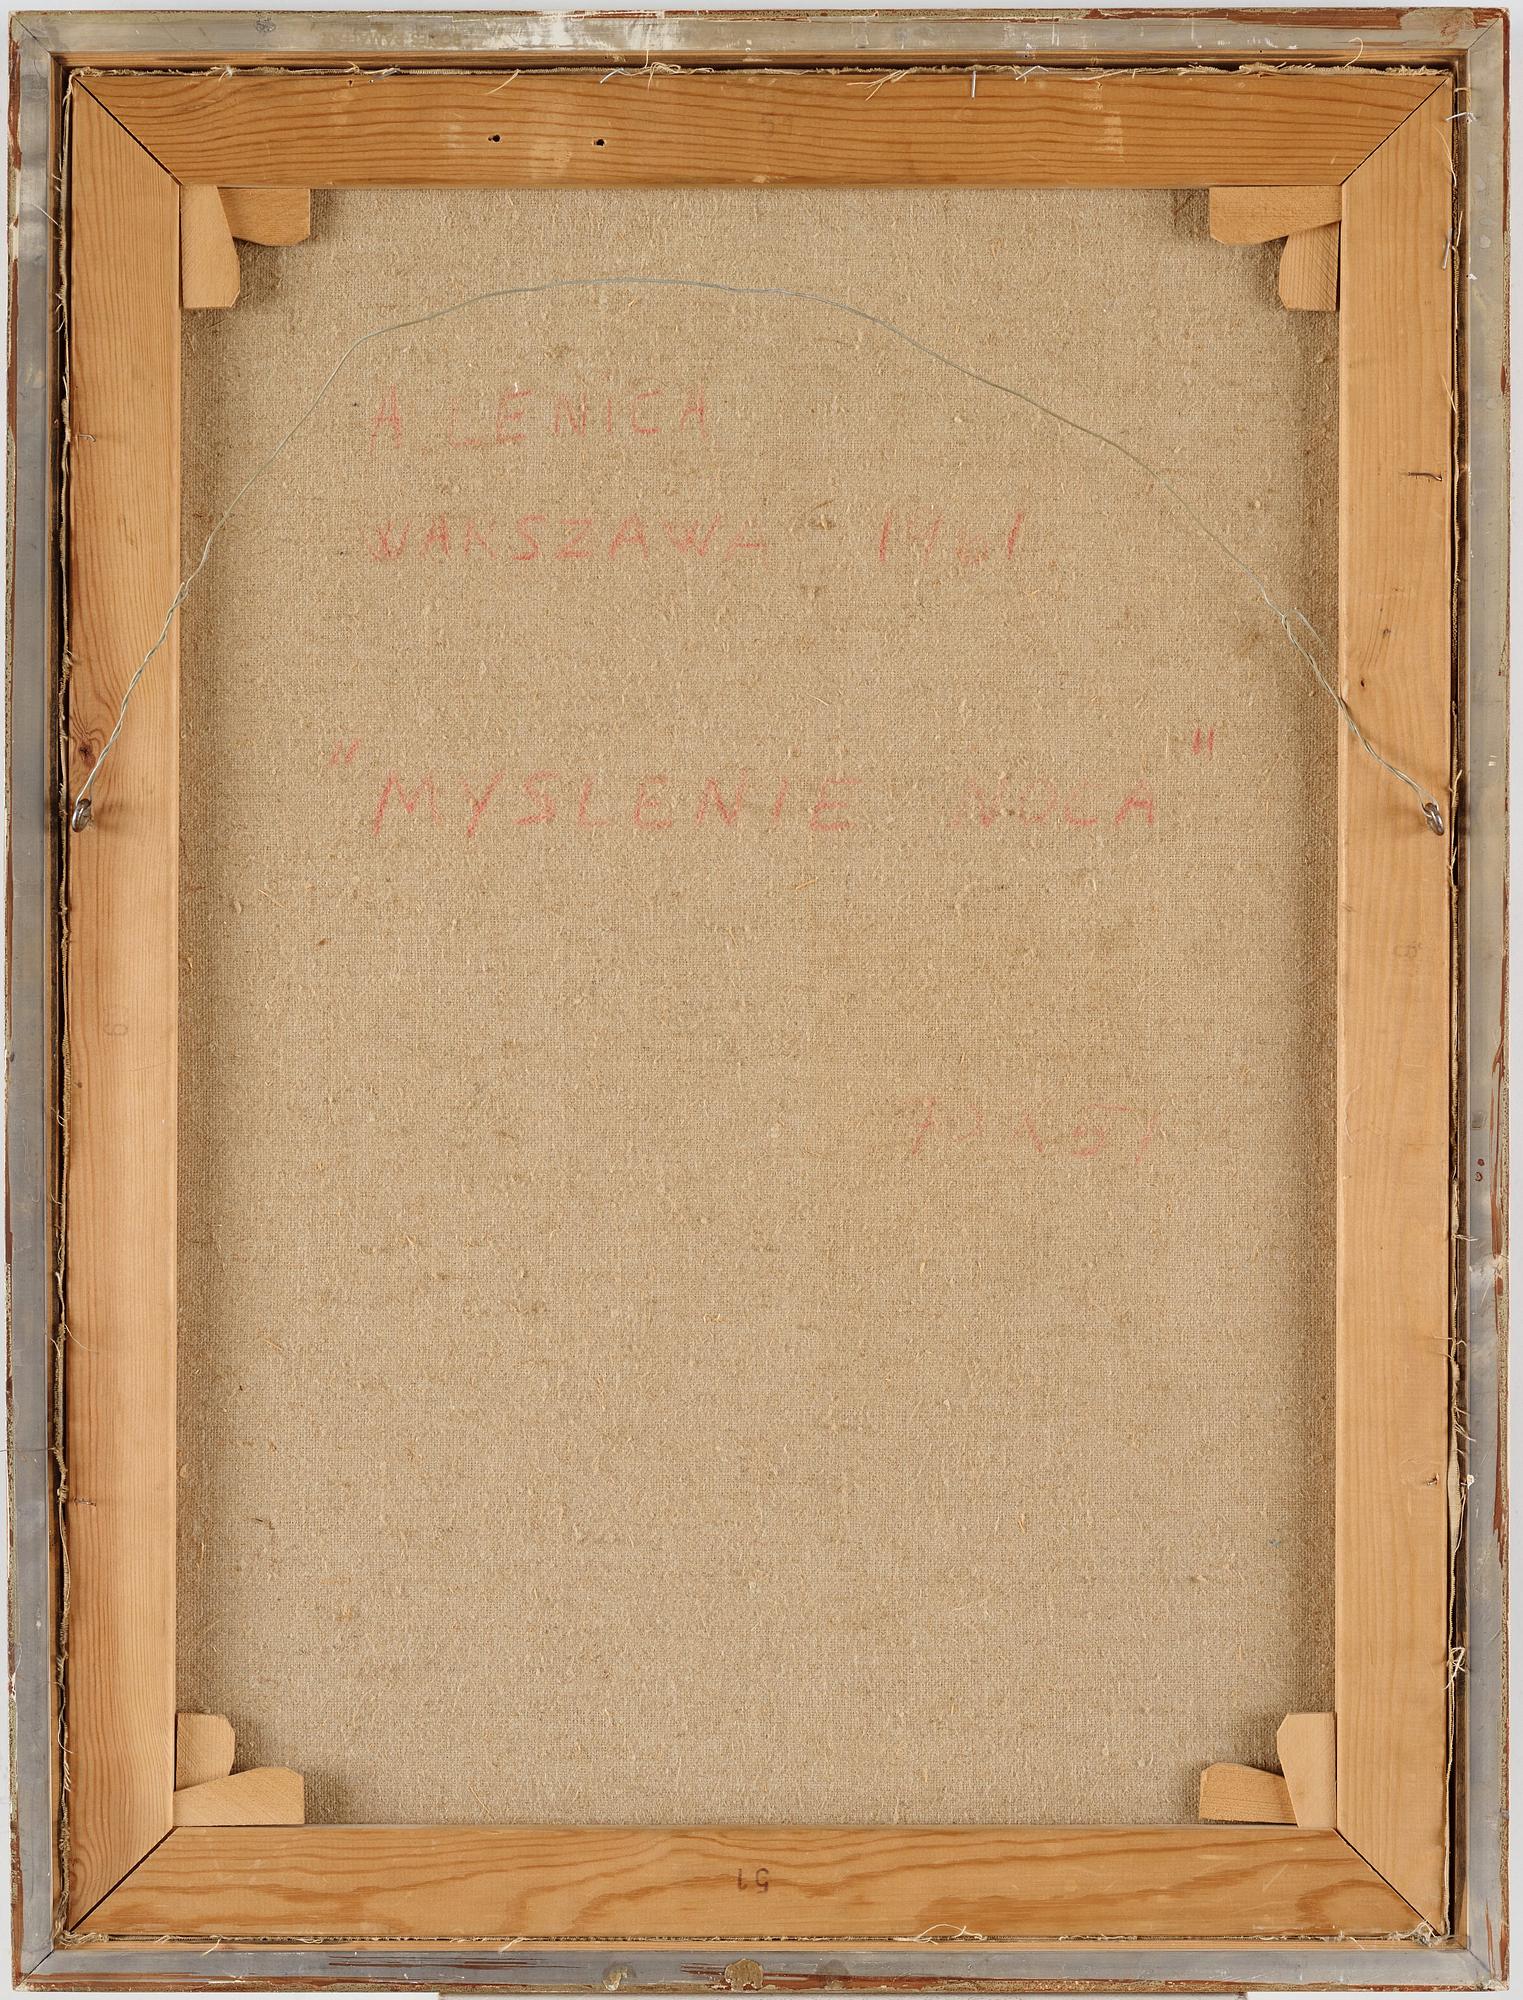 A LENICA
WARSZAWA 1961
"MYSLENIE NOCA"
51